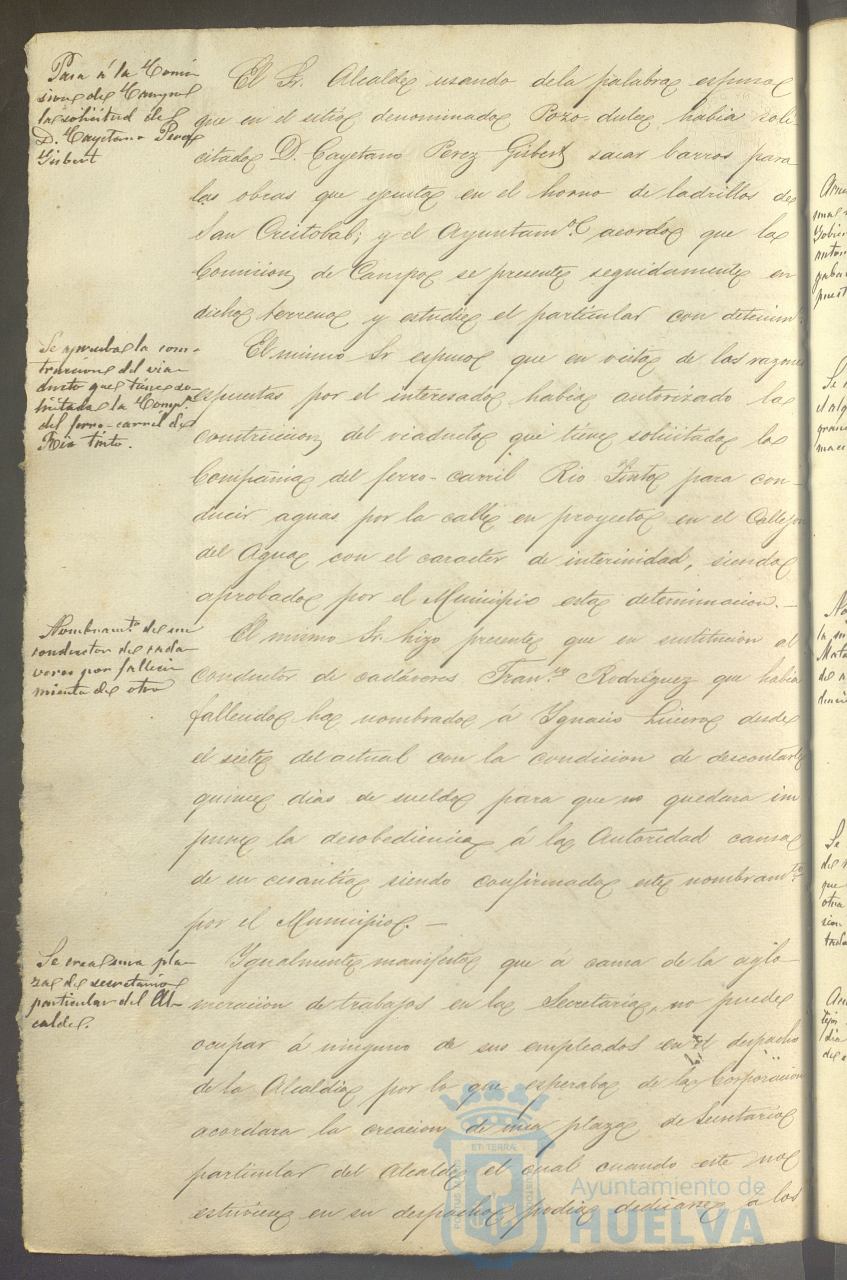 Pasa á la Comi-
sion de Campo
la solicitud de
D. Cayetano Perez
Gisbert
El Sr. Alcalde usando de la palabra espuso
que en el sitio denominado Pozo-dulce habia soli
citado D. Cayetano Perez Gisbert sacar barros para
las obras que ejecuta en el horno de ladrillos de
San Cristobal; y el Ayuntam.to acordó que la
Comision de Campo se presente seguidamente en
dicho terreno y estudie el particular con detenim.to
Se aprueba la cons-
truccion del via-
ducto que tiene so-
licitada la Comp.ª
del ferro-carril de
Rio tinto.
El mismo Sr espuso que en vista de las razones
espuestas por el interesado habia autorizado la
construccion del viaducto que tiene solicitado la
Compañia del ferro-carril Rio Tinto para con-
ducir aguas por la calle en proyecto en el Callejon
del Agua con el caracter de interinidad, siendo
aprobado por el Municipio esta determinacion.-
Nombram.to de un
conductor de cada
veres por falleci-
miento de otro
El mismo Sr. hizo presente que en sustitucion al
conductor de cadáveres Fran.co Rodríguez que habia
fallecido ha nombrado á Ygnacio Lucero desde
el siete del actual con la condicion de descontarle
quince dias de sueldo para que no quedara im
pune la desobediencia á la Autoridad causa
de su cesantia siendo confirmado este nombram.to
por el Municipio.-
Se crea una pla-
za de secretario
particular del Al-
calde.
Ygualmente manifestó que a causa de la aglo
meracion de trabajos en la Secretaria, no puede
ocupar á ninguno de sus empleados en el despacho
de la Alcaldia por lo que esperaba de la Corporacion
acordara la creacion de una plaza de Secretario
particular del Alcalde el cual cuando este no
estuviere en su despacho podia dedicarse a los
ET TERRÆ
Ayuntamiento de
HUELVA